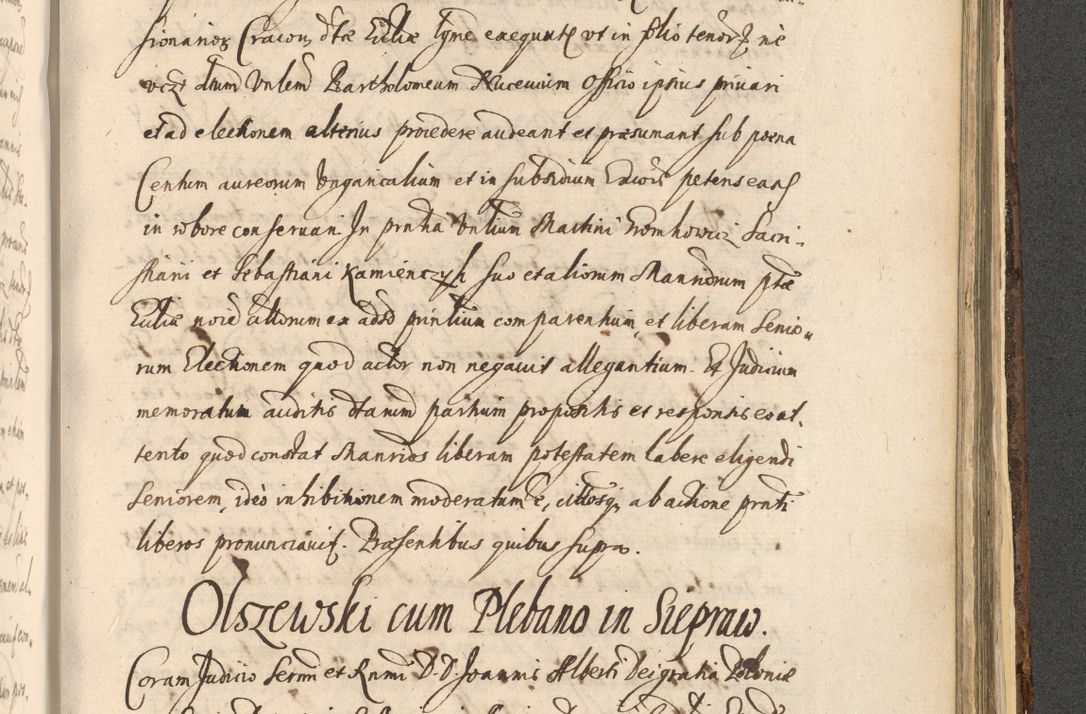 sionarior Cracou dtæ Eccliæ lgme exequutx vt in folio tenorz, ne
vczt dtum Vnlem Bartholomeum Nuceuium Officio ipsius priuari
et ad electionem alterius procedere audeant et præsumant sub poena
Centum aureorum Vngaricalium et in subsidium petens eas
in robore conseruari. In prntia Vnlium Martini Sacri-
stiani et Sebastiani Kamienczyk suo et aliorum Manriorum ptæ
Eccliæ noie cittorum ex adso prntium comparentium, et liberam Senio-
rum Electionem quod actor non negauit allegantium. Et Judicium
memoratum auditis dtarum partium propositis et responsis eo at-
tento quod constat Manrios liberam potestatem habere eligendi
Seniorem, ideo inhibitionem moderatum e, cittosq, ab actione prnti
liberos pronunciauit. Præsentibus quibus supra.
Olszewski cum Plebano in Siepraw.
Coram Judicio Sermi et Rnmi D. D. Joannis Alberti Dei gratia Poloniæ